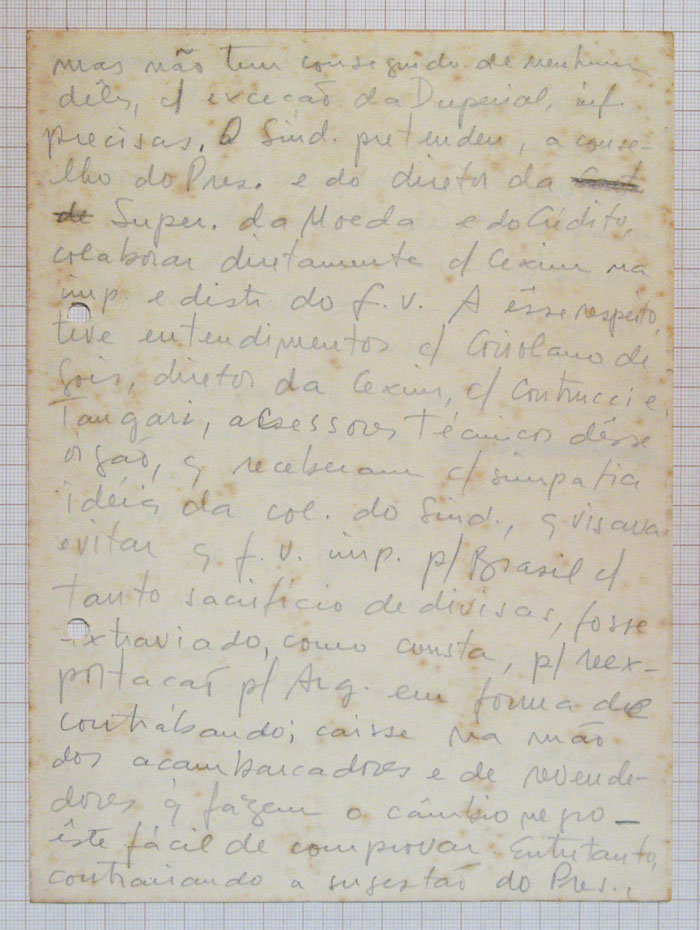 mas não tem conseguido de nenhum
dêles, c/ exceção da Duperial, inf.
precisas. O Sind. pretendeu, a conse-
lho do Pres. e do diretor da
de Super. da Moeda e do Crédito,
colaborar diretamente c/ Cexim na
imp. e distr. do f.v. A êsse respeito,
teve entendimentos c/ Coriolano de
Góis, diretor da Cexim, c/ Contrucci e
Tangari, acessores técnicos dêsse
orgão, q receberam c/ simpatia
idéia da col. do Sind., q visava
evitar q f.v. imp. p/ Brasil c/
tanto sacrifício de divisas, fosse
extraviado, como consta, p/ reex-
portação p/ Arg. em forma de
contrabando; caisse na mão
dos açambarcadores e de revende-
dores q fazem o câmbio negro —
êste fácil de comprovar. Entretanto,
contrariando a sugestão do Pres.,